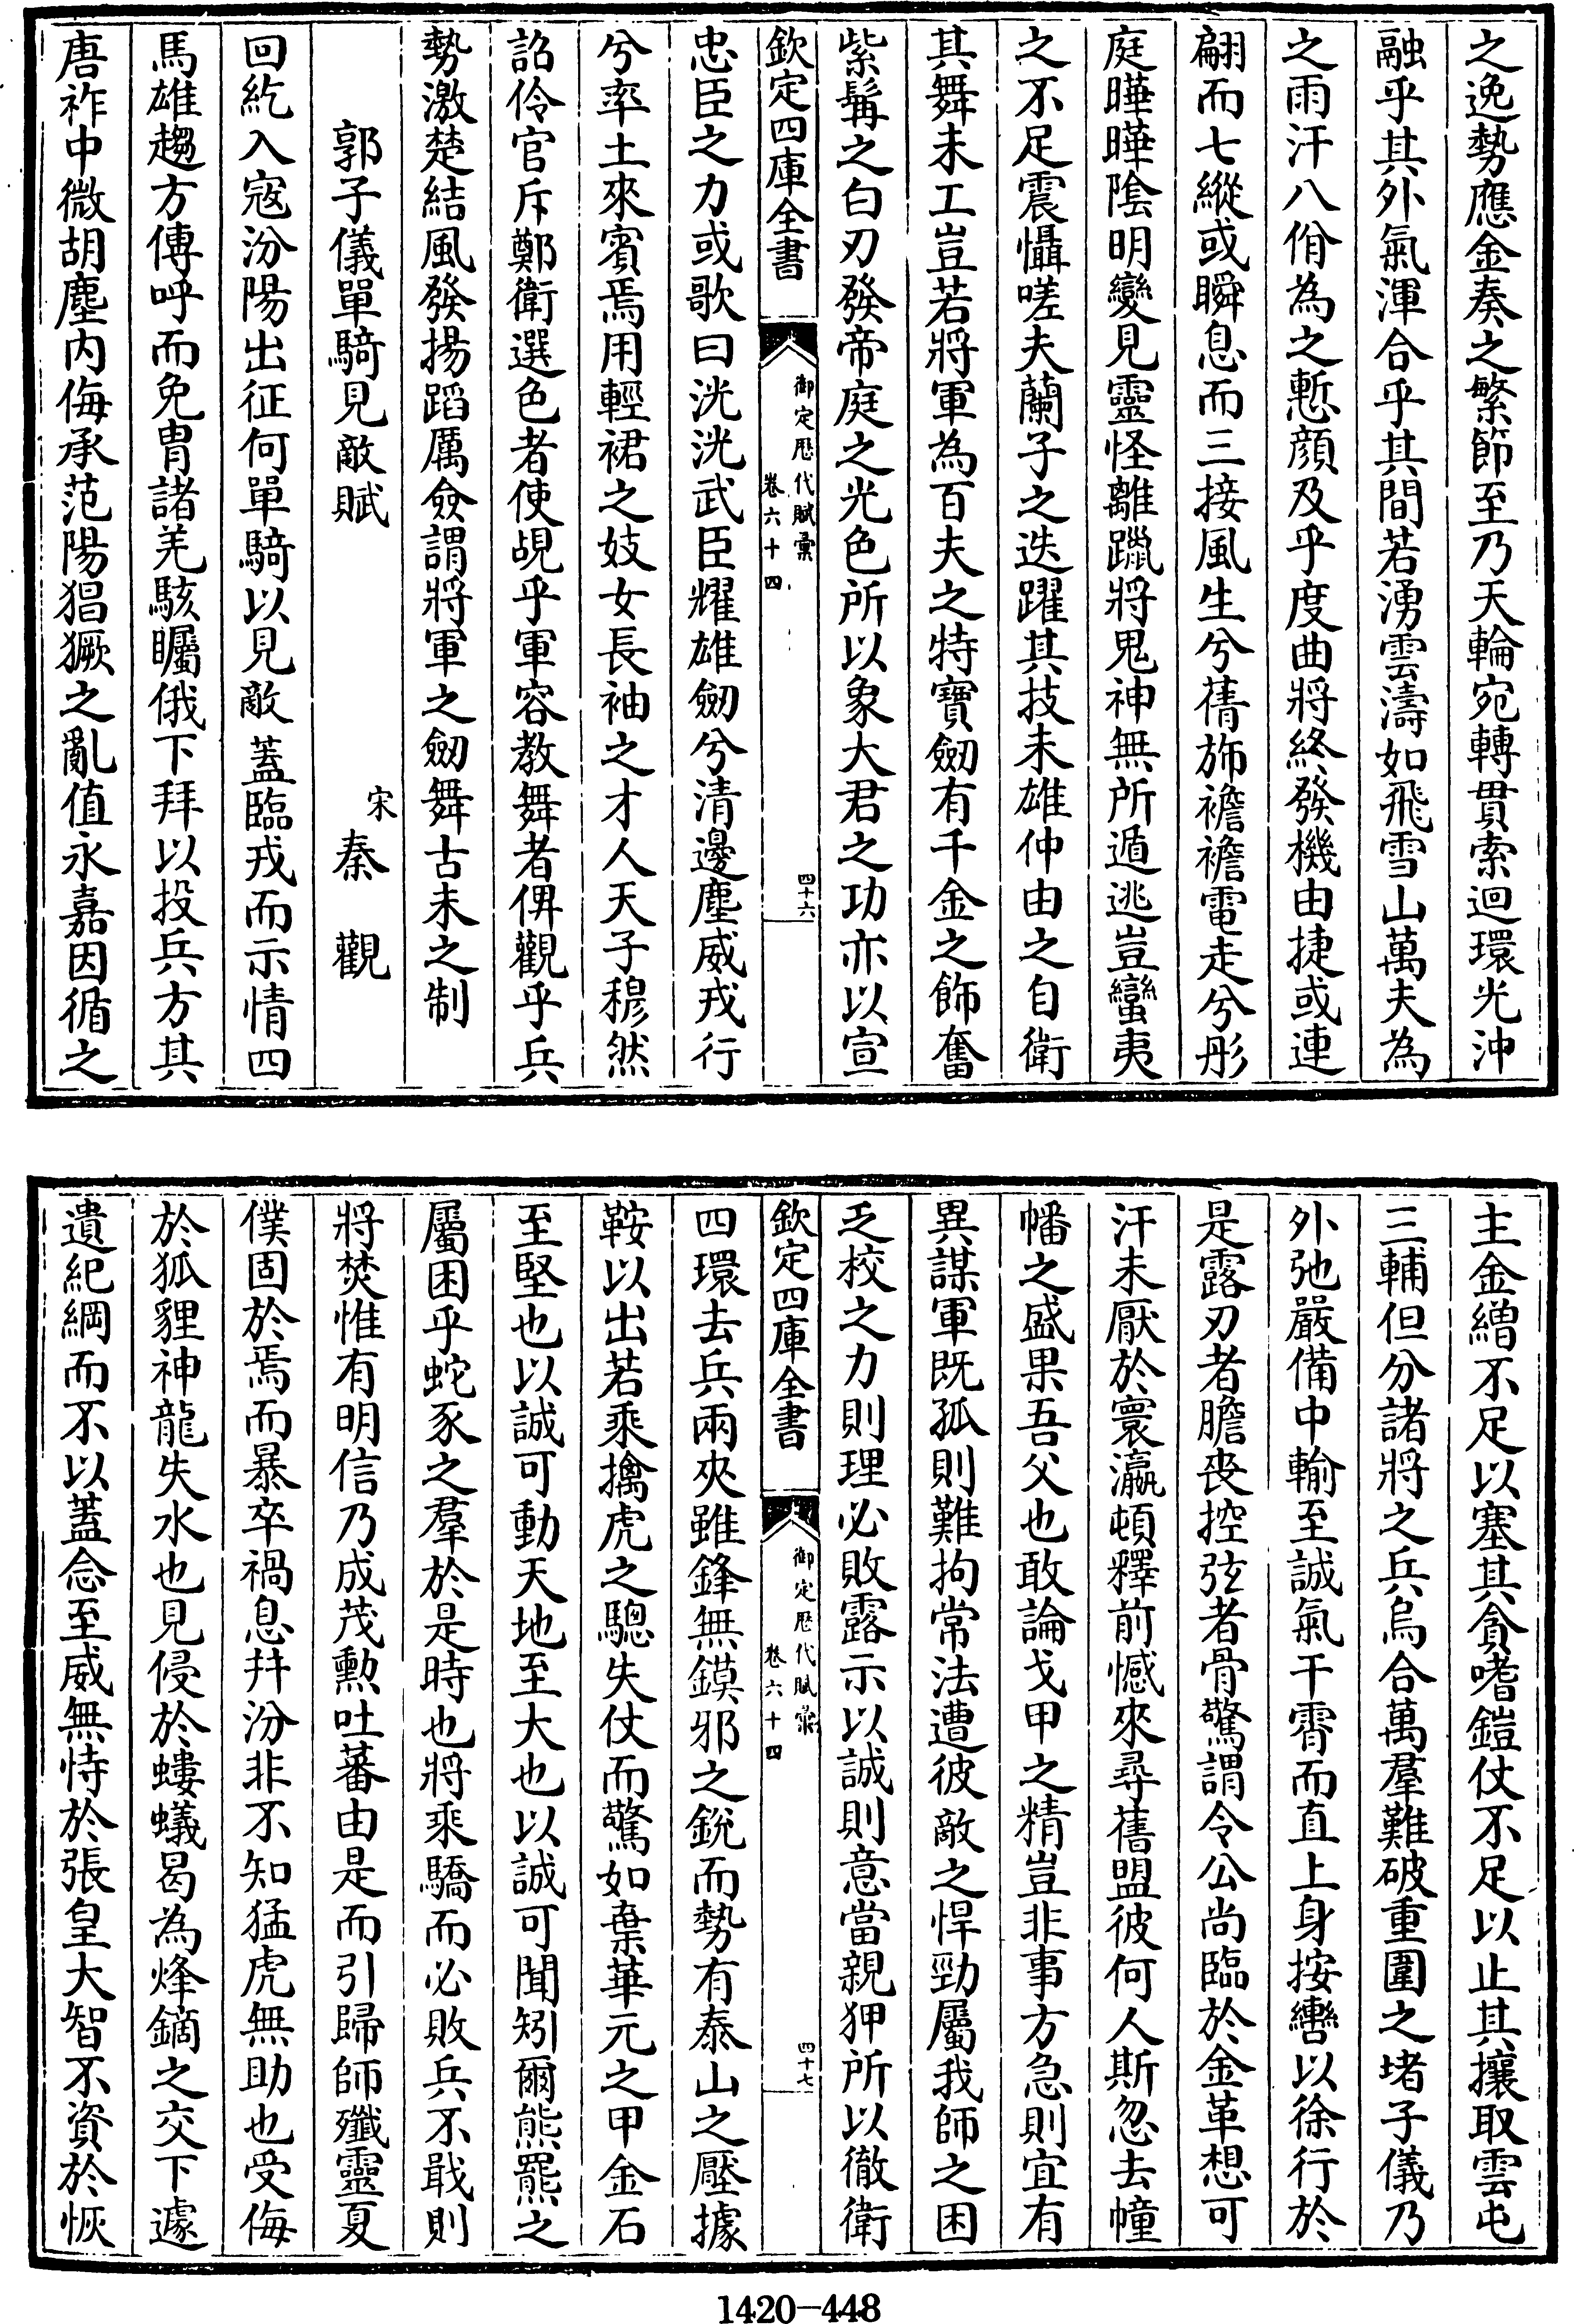 之逸勢應金奏之繁節至乃天輪宛轉貫索迴環光沖
融乎其外氣渾合乎其間若湧雲濤如飛雪山萬夫為
之雨汗八佾為之慙顔及乎度曲將終發機由捷或連
翩而七縱或瞬息而三接風生兮蒨斾襜襜電走兮彤
庭曄曄陰明變見靈怪離躐將鬼神無所遁逃豈蠻夷
之不足震懾嗟夫蘭子之迭躍其技未雄仲由之自衛
其舞未工豈若將軍為百夫之特寶劒有千金之飾奮
紫髯之白刃發帝庭之光色所以象大君之功亦以宣
欽定四庫全書
御定歴代賦彙
卷六十四
四十六
忠臣之力或歌曰洸洸武臣耀雄劒兮清邊塵威戎行
兮率土來賓焉用輕裾之妓女長袖之才人天子穆然
詔伶官斥鄭衛選色者使覘乎軍容教舞者俾觀乎兵
勢激楚結風發揚蹈厲僉謂將軍之劒舞古未之制
郭子儀單騎見敵賦
宋秦觀
回紇入寇汾陽出征何單騎以見敵蓋臨戎而示情四
馬雄趨方傳呼而免胄諸羌駭矚俄下拜以投兵方其
唐祚中微胡塵内侮承范陽猖獗之亂值永嘉因循之
主金繒不足以塞其貪嗜鎧仗不足以止其攘取雲屯
三輔但分諸將之兵烏合萬羣難破重圍之堵子儀乃
外弛嚴備中輸至誠氣干霄而直上身按轡以徐行於
是露刃者膽喪控弦者骨驚謂令公尚臨於金革想可
汗未厭於寰瀛頓釋前憾來尋舊盟彼何人斯忽去幢
幡之盛果吾父也敢論戈甲之精豈非事方急則宜有
異謀軍既孤則難拘常法遭彼敵之悍勁屬我師之困
乏校之力則理必敗露示以誠則意當親狎所以徹衛
欽定四庫全書
御定歴代賦彙
卷六十四
四十七
四環去兵兩夾雖鋒無鏌邪之銳而勢有泰山之壓據
鞍以出若乘擒虎之驄失仗而驚如棄華元之甲金石
至堅也以誠可動天地至大也以誠可聞矧爾熊羆之
屬困乎蛇豕之羣於是時也將乘驕而必敗兵不戢則
將焚惟有明信乃成茂勲吐蕃由是而引歸師殲靈夏
僕固於焉而暴卒禍息幷汾非不知猛虎無助也受侮
於狐貍神龍失水也見侵於螻蟻曷為烽鏑之交下遽
遺紀綱而不以蓋念至威無恃於張皇大智不資於恢
1420-448